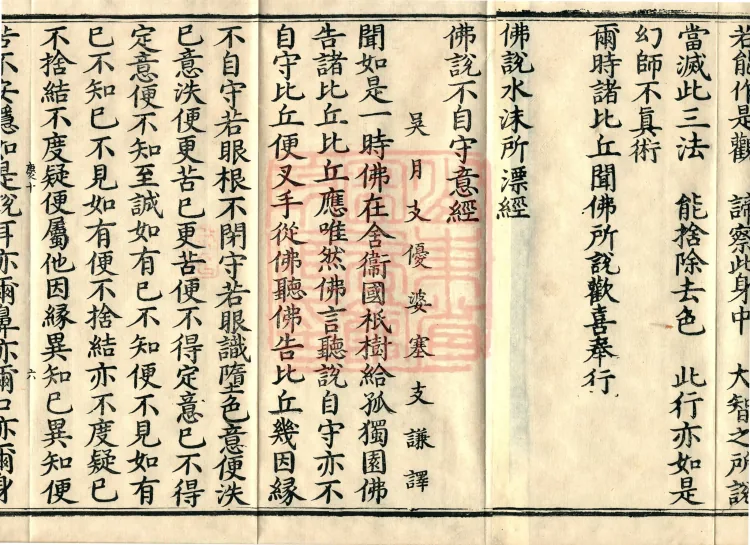 若能作是觀　諦察此身中　大智之所說
當滅此三法　能捨除去色　此行亦如是
幻師不真術
爾時諸比丘聞佛所說歡喜奉行
佛說水沫所漂經
佛說不自守意經
吳月支優婆塞支謙譯
聞如是一時佛在舍衛國祇樹給孤獨園佛
告諸比丘比丘應唯然佛言聽說自守亦不
自守比丘便叉手從佛聽佛告比丘幾因緣
不自守若眼根不閉守若眼識墮色意便泆
已意泆便更苦已更苦便不得定意已不得
定意便不知至誠如有已不知便不見如有
已不知已不見如有便不捨結亦不度疑已
不捨結不度疑便屬他因緣異知已異知便
慶十
六
苦不安隱如是說耳亦爾鼻亦爾口亦爾身